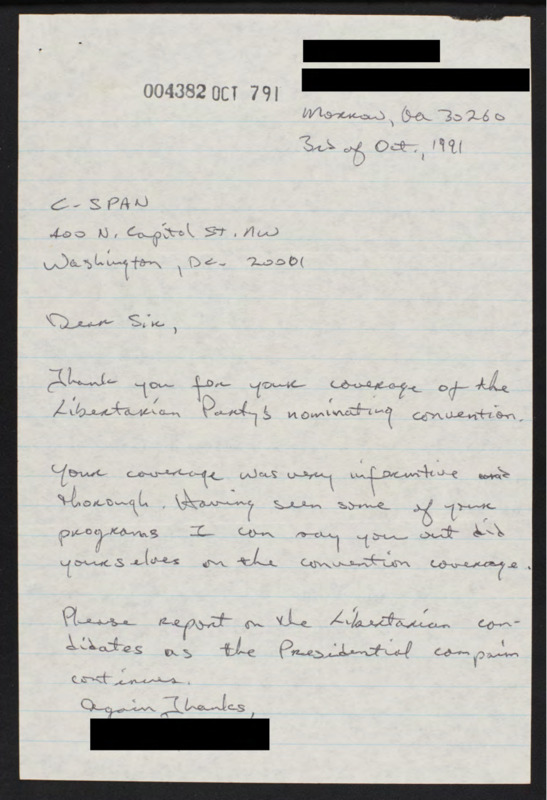 004382 OCT 791
Morrow, Ga 30260
3rd of Oct., 1991
C-SPAN
400 N. Capitol St. NW
Washington, DC. 20001
Dear Sir,
Thank you for your coverage of the
Libertarian Party's nominating convention.
Your coverage was very informitive and
thorough. Having seen some of your
programs I can say you out did
yourselves on the convention coverage.
Please report on the Libertarian can-
didates as the Presidential campaim
continues.
Again Thanks,